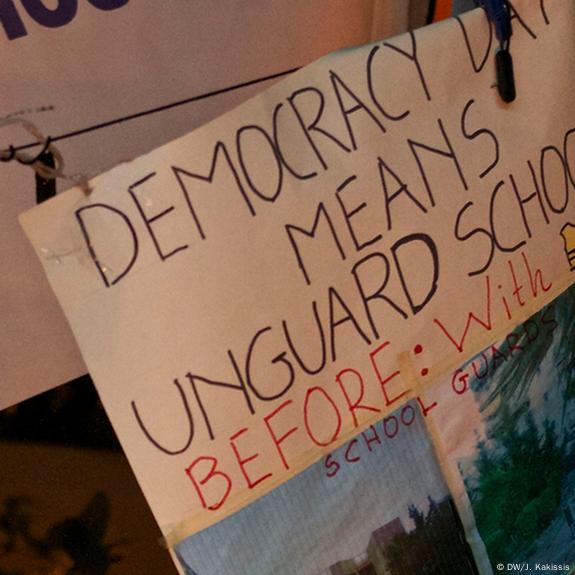 DEMOCRACY DAY
MEANS
UNGUARD SCHOO
BEFORE: With
SCHOOL GUARDS
© DW/J. Kakissis